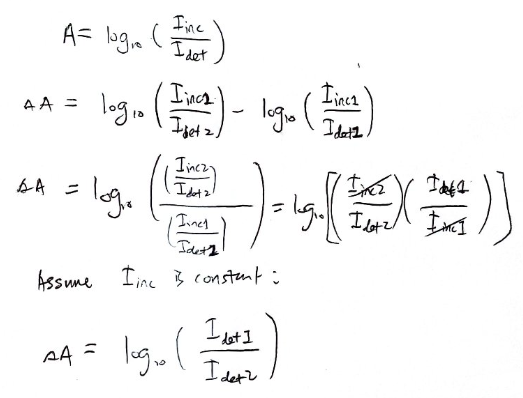 A = log₁₀ (I_inc / I_det)
ΔA = log₁₀ (I_inc2 / I_det2) − log₁₀ (I_inc1 / I_det1)
ΔA = log₁₀ ((I_inc2 / I_det2) / (I_inc1 / I_det1)) = log₁₀ [(I_inc2 / I_det2)(I_det1 / I_inc1)]
Assume I_inc is constant :
ΔA = log₁₀ (I_det1 / I_det2)